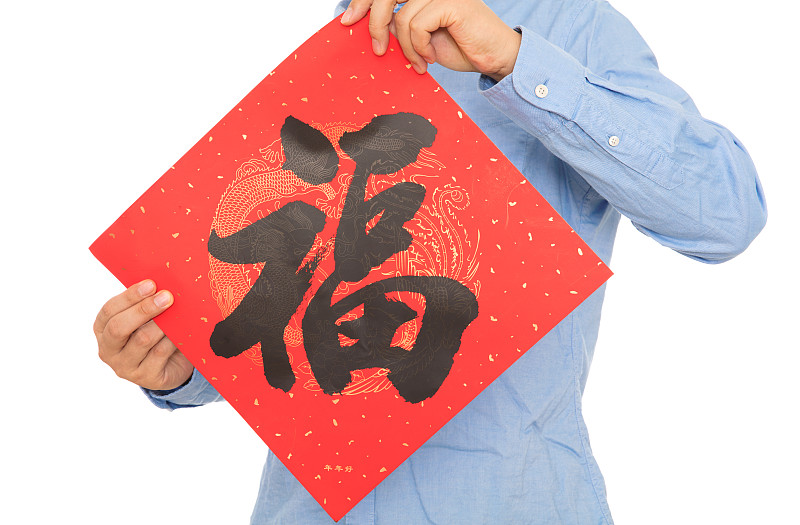 福
年年好